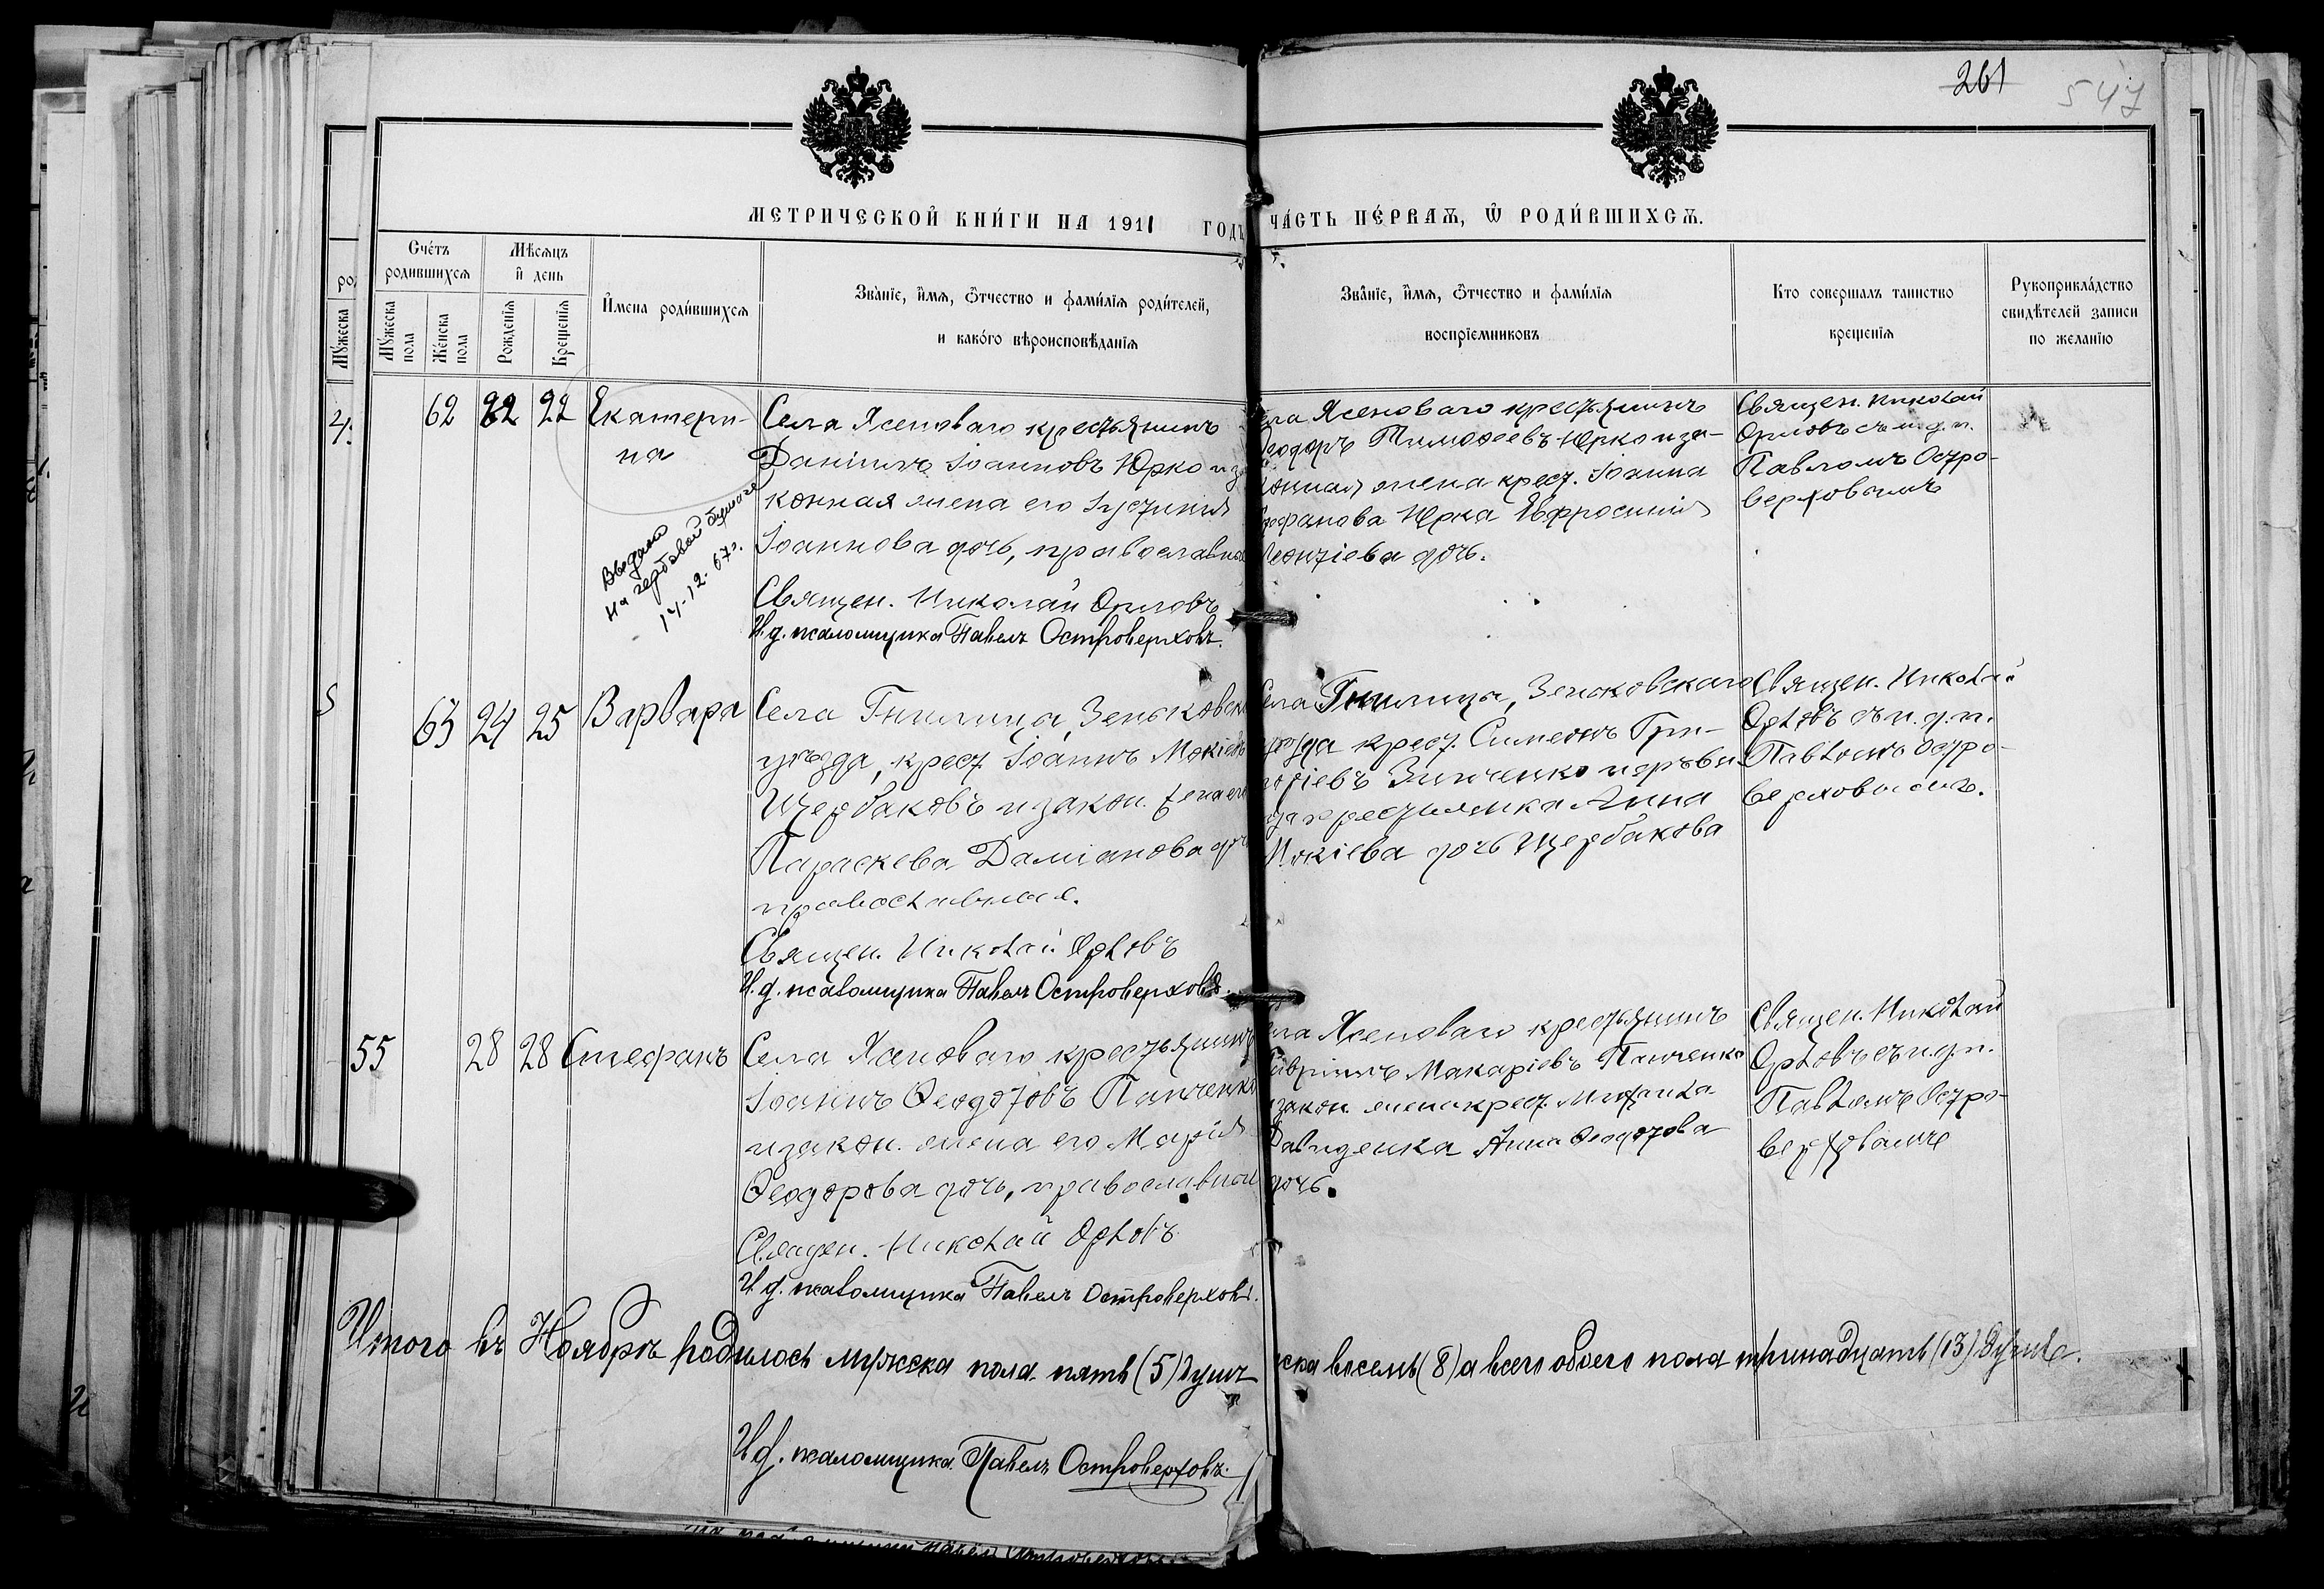 261
547
МЕТРИЧЕСКОЙ КНИ́ГИ НА 1911 ГОДЪ ЧА́СТЬ ПЕ́РВАѦ, Ѿ РОДИ́ВШИХСѦ.
Сче́тъ родившихсѧ
Мѣсѧцъ и день
Имена роди́вшихсѧ
Зва̀нїе, и́мѧ, ѻ́тчество и фами́лїѧ роди́телей, и како́го вѣроисповѣ́данїѧ
Зва̀нїе, и́мѧ, ѻ́тчество и фами́лїѧ воспрїемниковъ
Кто совершалъ таинство крещенїѧ
Рукоприкла́дство свидѣтелей записи по желанїю
Мꙋжеска
Мꙋ́жеска пола
Же́нска пола
Рожденїѧ
Крещенїѧ
62 22 22 Екатери-
на
Села Ясеноваго крестьянинъ
Даніилъ Іоанновъ Юрко и за
конная жена его Іустинія
Іоаннова дочь, православна
Священ. Николай Орловъ
И.д. псаломщика Павелъ Островерховъ.
Выдано
на гербовой бумаге
14.12.67г.
ела Ясеноваго крестьянинъ
еодоръ Тимоѳеевъ Юрко и за-
онная жена крест. Іоанна
Стефанова Юрка Евфросинія
Леонтіева дочь.
Священ. Николай
Орловъ съ и.д.п.
Павломъ Остро-
верховымъ
63 24 25 Варвара
Села Гнилица, Зеньковска
уѣзда, крест. Іоаннъ Мокіевъ
Щербаковъ и закон. жена его
Параскева Даміанова доч
православная.
Священ. Николай Орловъ
И.д. псаломщика Павелъ Островерховъ.
Села Гнилица, Зеньковскаго
уѣзда крест. Симеонъ Гри-
горіевъ Зинченко и
крестьянка Анна
Мокіева дочь Щербакова
Священ. Николай
Орловъ съ и.д.п.
Павломъ Остро-
верховымъ.
55 28 28 Стефанъ
Села Ясеноваго крестьянинъ
Іоаннъ Ѳеодотовъ Панченко
и закон. жена его Марія
Ѳеодорова дочь, православная
Священ. Николай Орловъ
И.д. псаломщика Павелъ Островерховъ.
ела Ясеноваго крестьянинъ
Гавріилъ Макаріевъ Панченко
и закон. жена крест. Михаила
Давиденка Анна Ѳеодотова
дочь.
Священ. Николай
Орловъ съ и.д.п.
Павломъ Остро-
верховымъ
Итого въ Ноябрѣ родилось мужска пола пять (5) душъ
ска восемь (8) а всего обоего пола тринадцать (13) душъ.
И.д. псаломщика Павелъ Островерховъ.